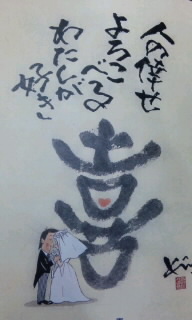 人の倖せ
よろこべる
わたしが
好き
喜